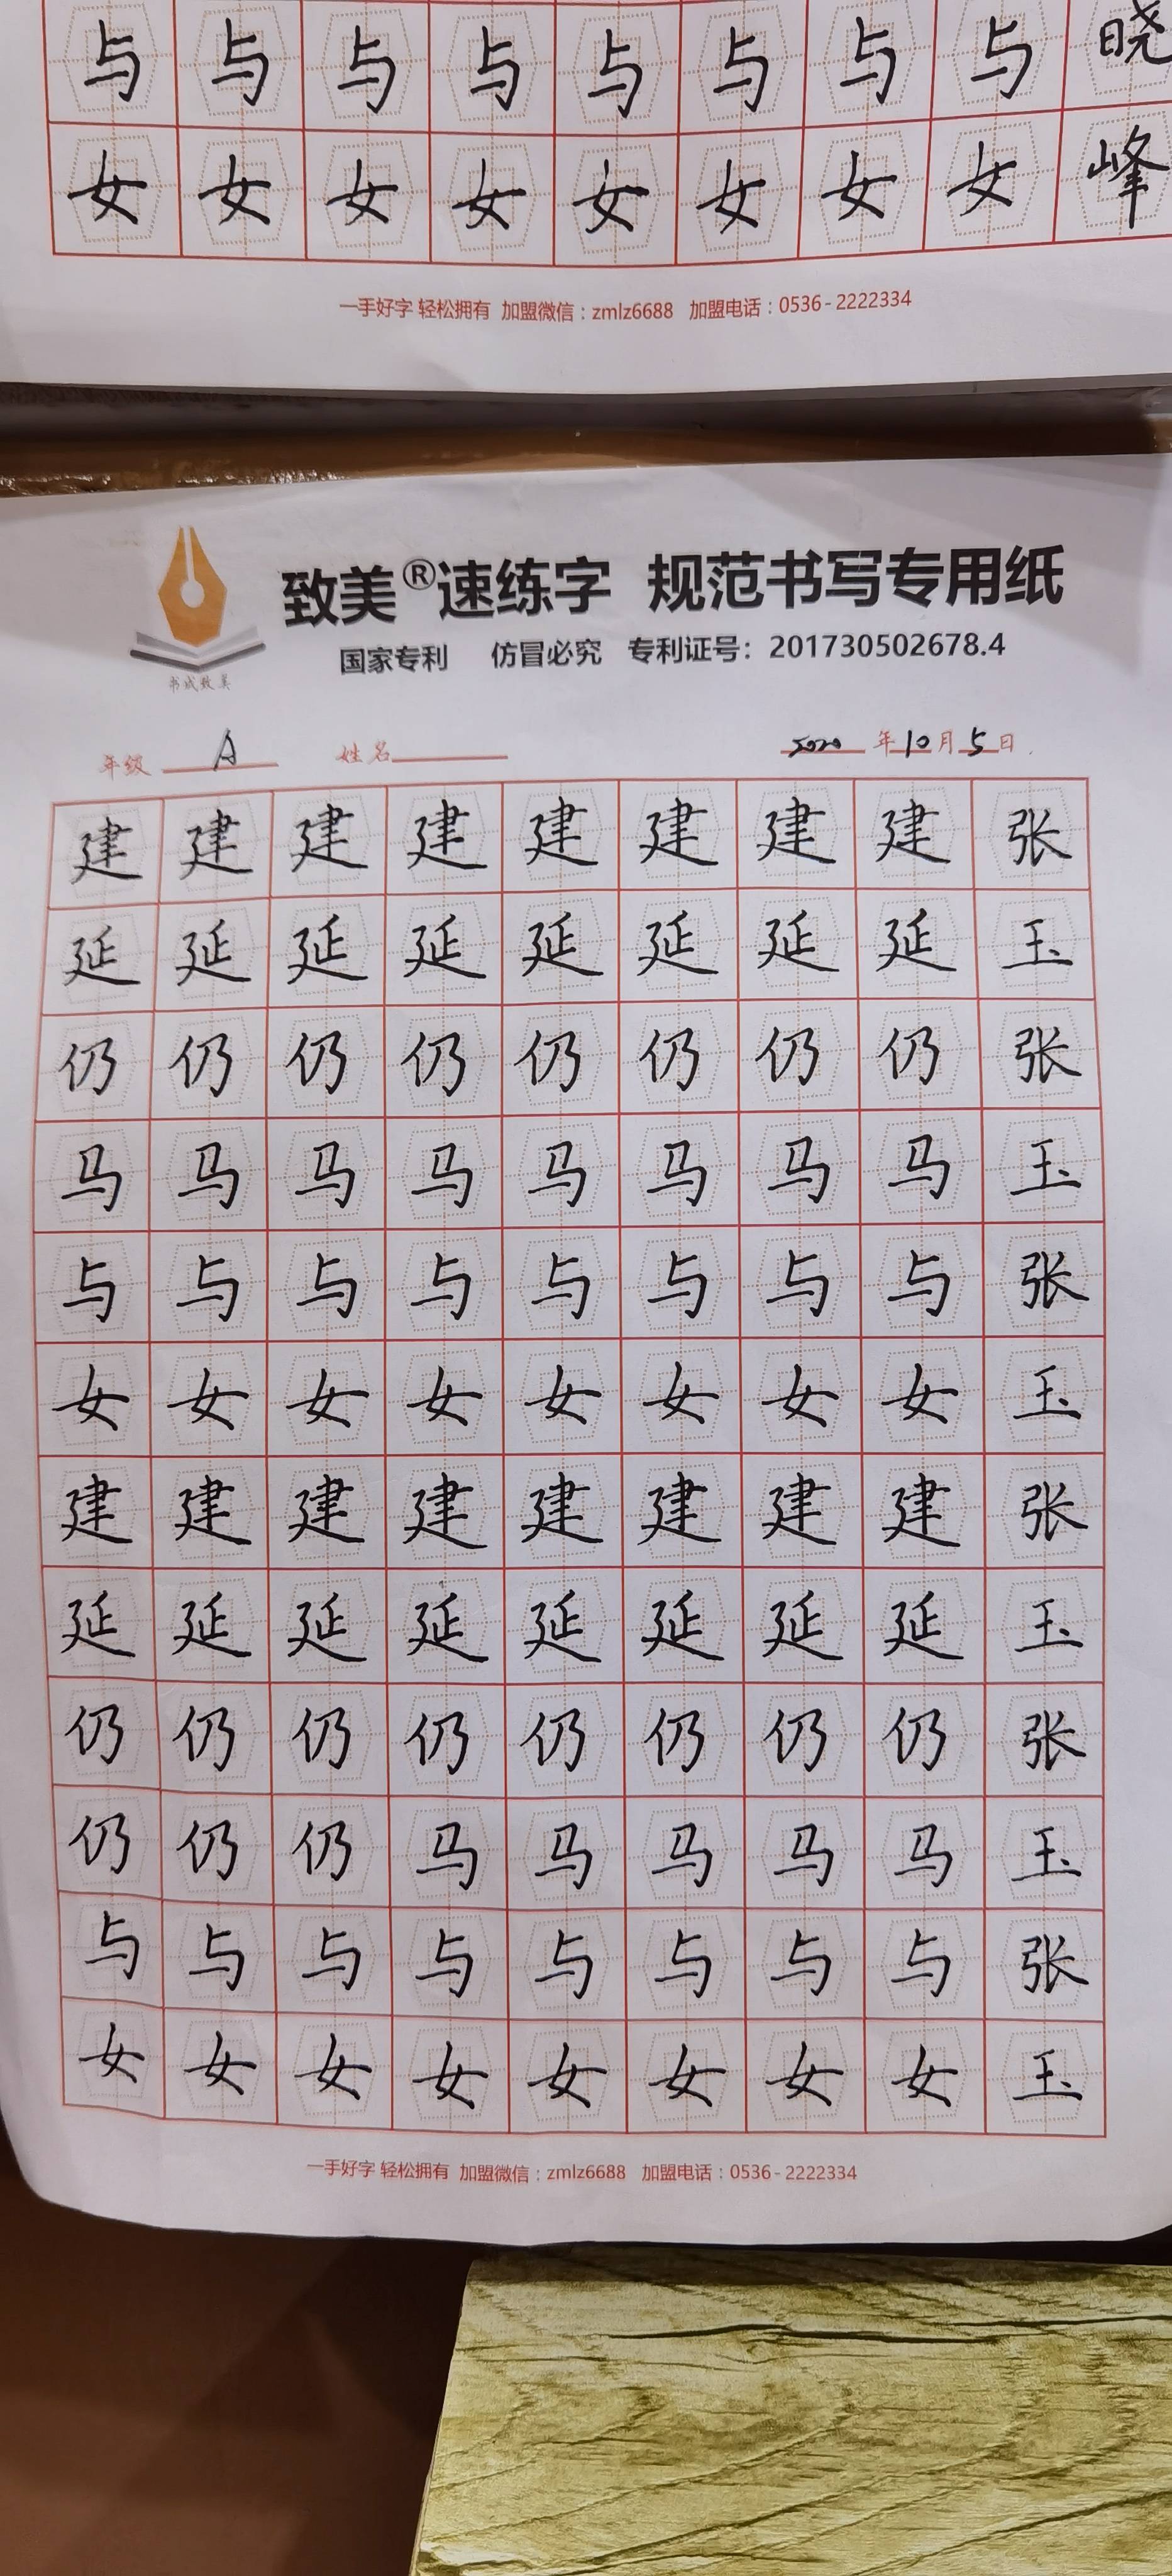 与与与与与与与与晓
女女女女女女女女峰
一手好字 轻松拥有 加盟微信：zmlz6688 加盟电话：0536-2222334
致美®速练字 规范书写专用纸
国家专利 仿冒必究 专利证号：201730502678.4
书成致美
年级 A 姓名 2020 年 10 月 5 日
建建建建建建建建张
延延延延延延延延玉
仍仍仍仍仍仍仍仍张
马马马马马马马马玉
与与与与与与与与张
女女女女女女女女玉
建建建建建建建建张
延延延延延延延延玉
仍仍仍仍仍仍仍仍张
仍仍仍马马马马马玉
与与与与与与与与张
女女女女女女女女玉
一手好字 轻松拥有 加盟微信：zmlz6688 加盟电话：0536-2222334